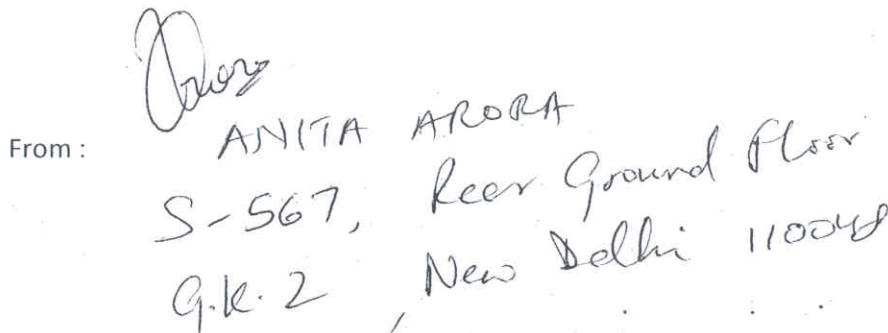 From :
ANITA ARORA
S-567, Rear Ground Floor
G.K. 2, New Delhi 110048